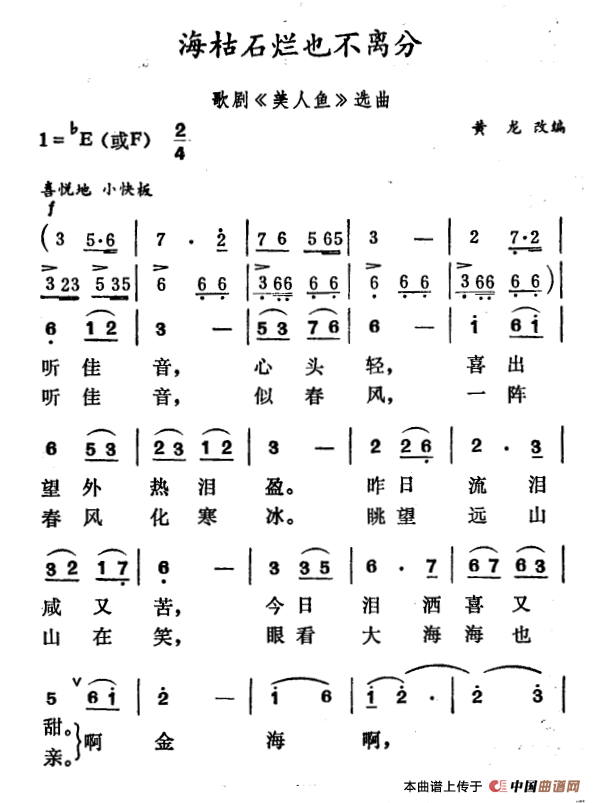 海枯石烂也不离分
歌剧《美人鱼》选曲
1=♭E（或F） 2/4
黄 龙 改编
喜悦地 小快板
f
(3 5·6 | 7 · 2 | 7 6 5 65 | 3 — | 2 7·2 |
3 23 5 35 | 6 6 6 | 3 66 6 6 | 6 6 6 | 3 66 6 6)
6 1 2 | 3 — | 5 3 7 6 | 6 — | i 6 i |
听 佳 音， 心 头 轻， 喜 出
听 佳 音， 似 春 风， 一 阵
6 5 3 | 2 3 1 2 | 3 — | 2 2 6 | 2 · 3 |
望 外 热 泪 盈。 昨 日 流 泪
春 风 化 寒 冰。 眺 望 远 山
3 2 1 7 | 6 — | 3 3 5 | 6 · 7 | 6 7 6 3 |
咸 又 苦， 今 日 泪 洒 喜 又
山 在 笑， 眼 看 大 海 海 也
5 ∨ 6 i | 2 — | i 6 | i 2 · | 2 3 |
甜。 啊 金 海 啊，
亲。
本曲谱上传于 中国曲谱网